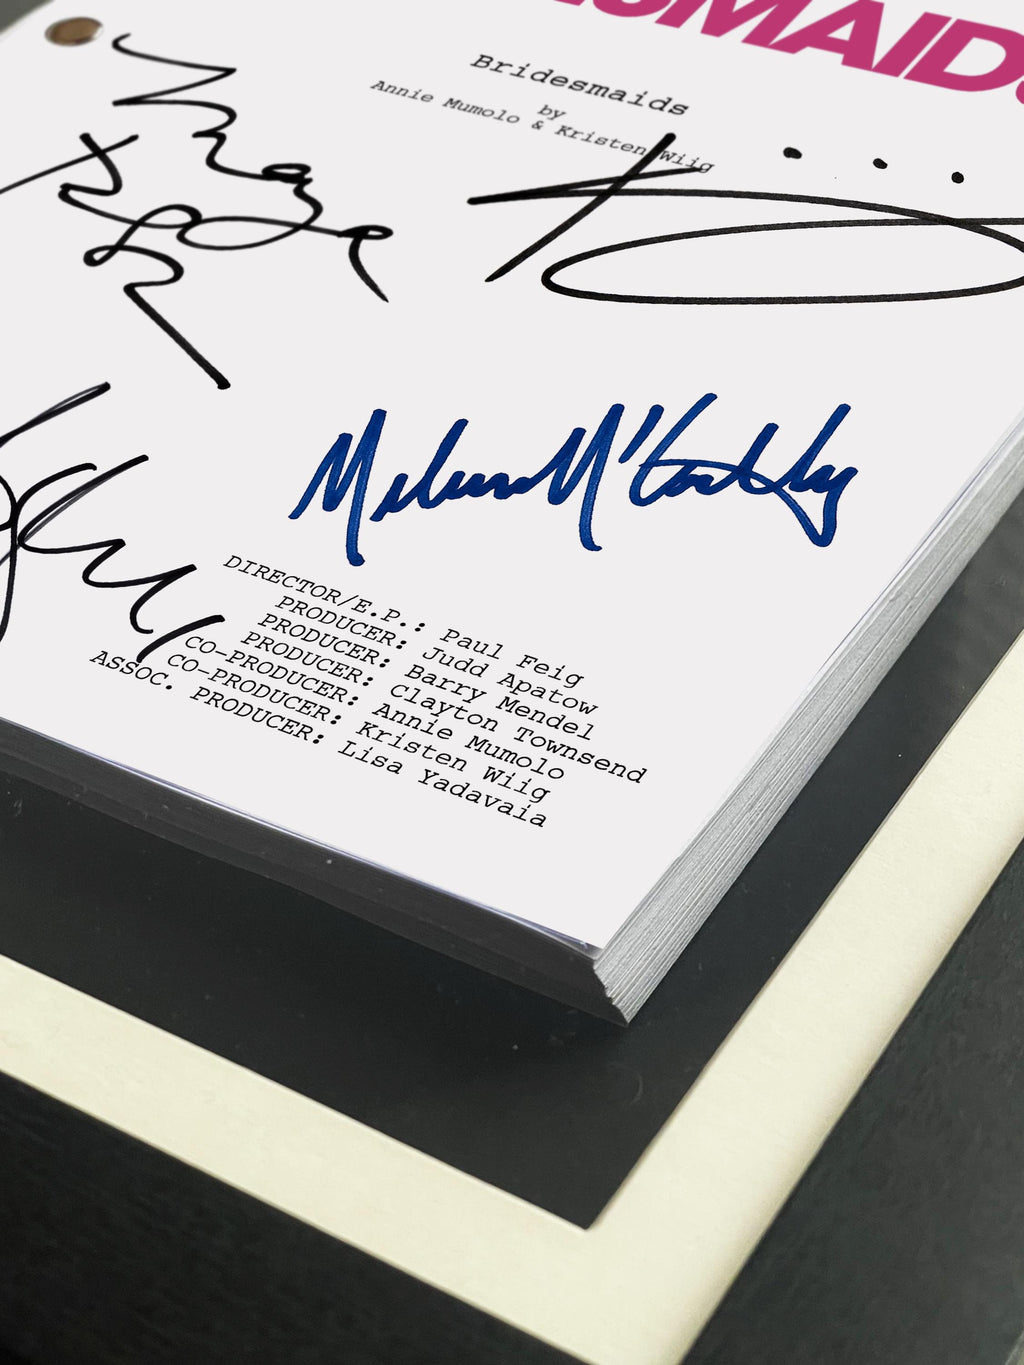 SMAIDS
Bridesmaids
by
Annie Mumolo & Kristen Wiig
Maya
Melissa McCarthy
DIRECTOR/E.P.: Paul Feig
PRODUCER: Judd Apatow
PRODUCER: Barry Mendel
PRODUCER: Clayton Townsend
CO-PRODUCER: Annie Mumolo
CO-PRODUCER: Kristen Wiig
ASSOC. PRODUCER: Lisa Yadavaia